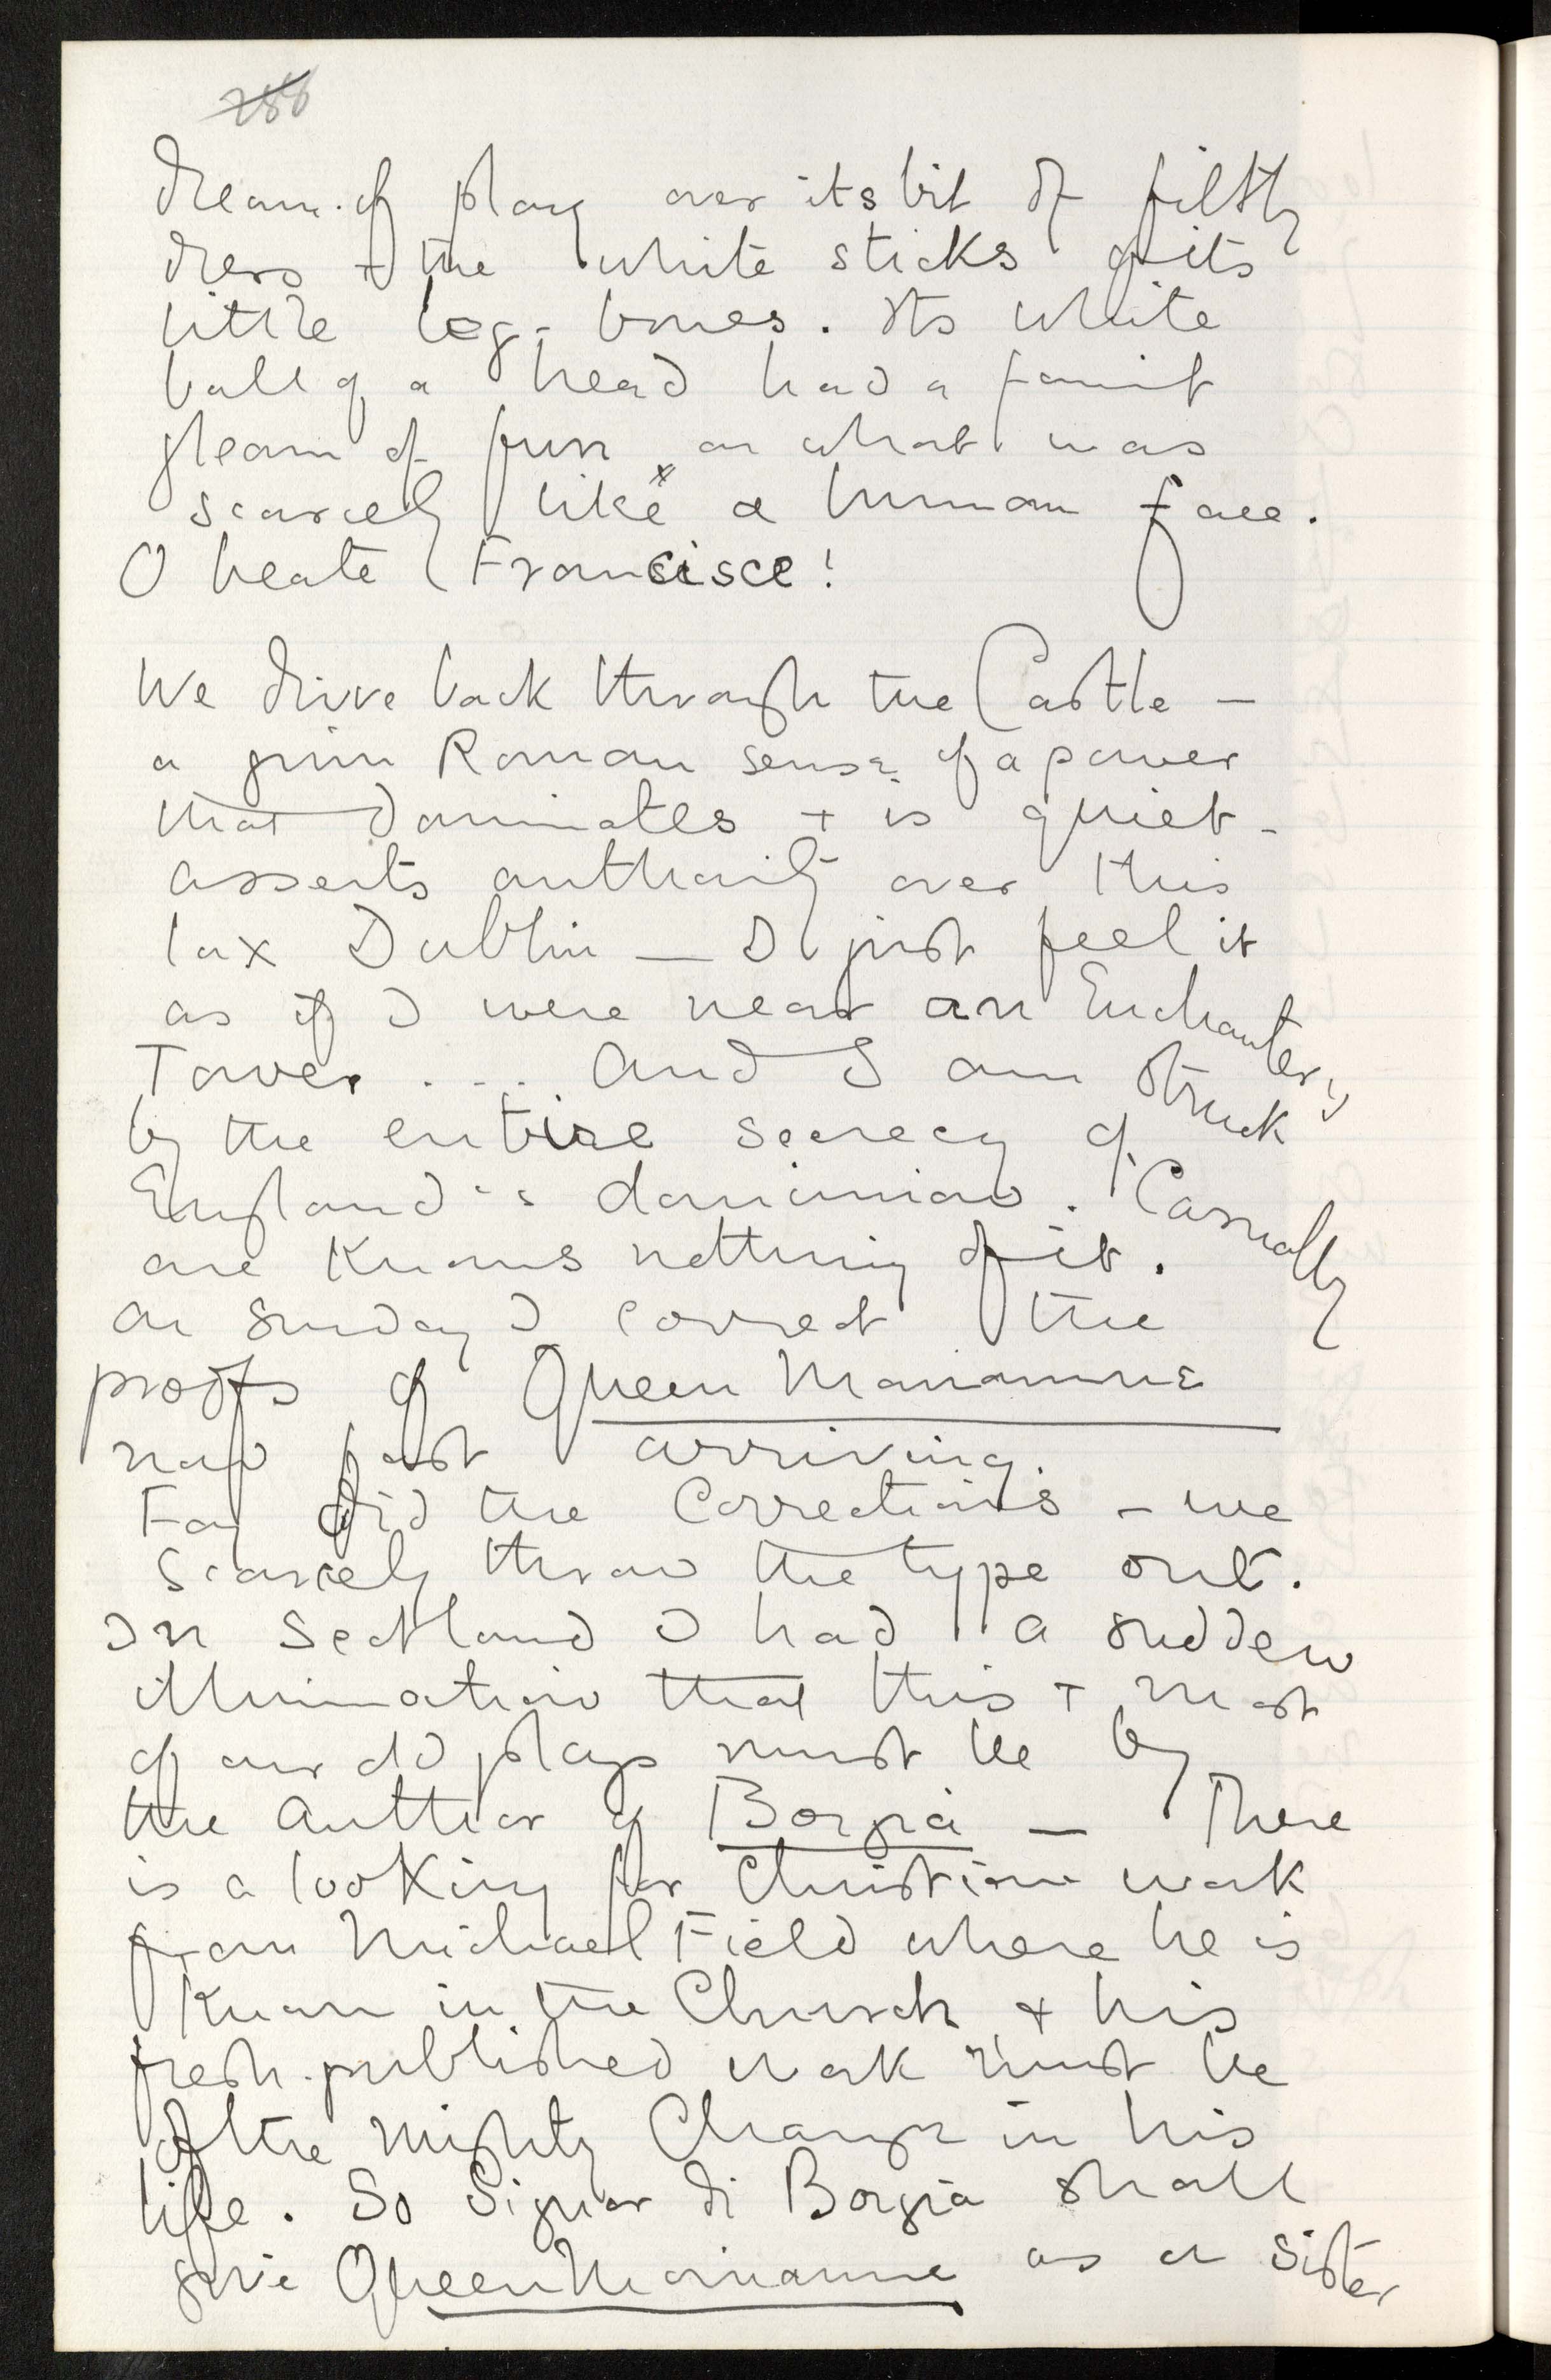 286
dream of play over its bit of filthy
dress + the white sticks of its
little leg-bones. Its white
ball of a head had a faint
gleam of fun on what was
scarcely like a human face.
O beate Francisce!
We drive back through the Castle –
a grim Roman sense of a power
that dominates + is quiet –
asserts authority over this
lax Dublin – I just feel it
as if I were near an Enchanter's
Tower . . . And I am struck
by the entire secrecy of
England's dominion. Casually
one knows nothing of it.
On Sunday I correct the
proofs of Queen Mariamne
now fast arriving.
Fay did the Corrections – we
scarcely throw the type out.
In Scotland I had a sudden
illumination that this + most
of our old plays must be by
the Author of Borgia – There
is a looking for Christian work
from Michael Field where he is
known in the Church + his
fresh-published work must be
of the mighty Change in his
life. So Signor di Borgia shall
give Queen Mariamne as a sister